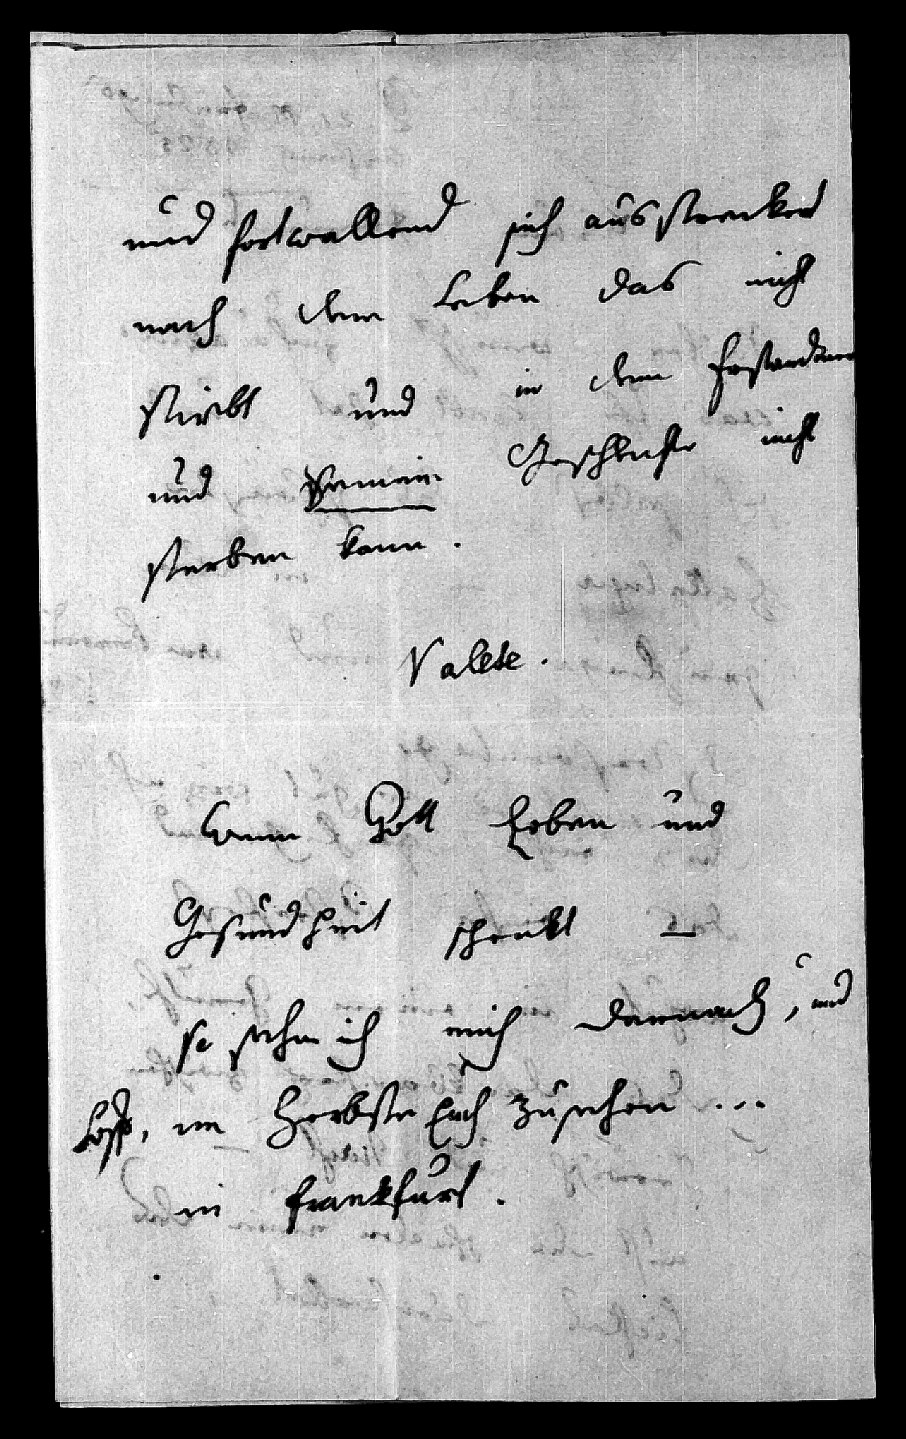 und fortwallend sich ausstreckend
nach dem Leben das nicht
stirbt und in dem
und Geschlechte nicht
sterben kann.
Valete.
Wenn Gott Leben und
Gesundheit schenkt —
so sehne ich mich darnach, und
hoffe, im Herbste Euch zu sehen ...
in Frankfurt.